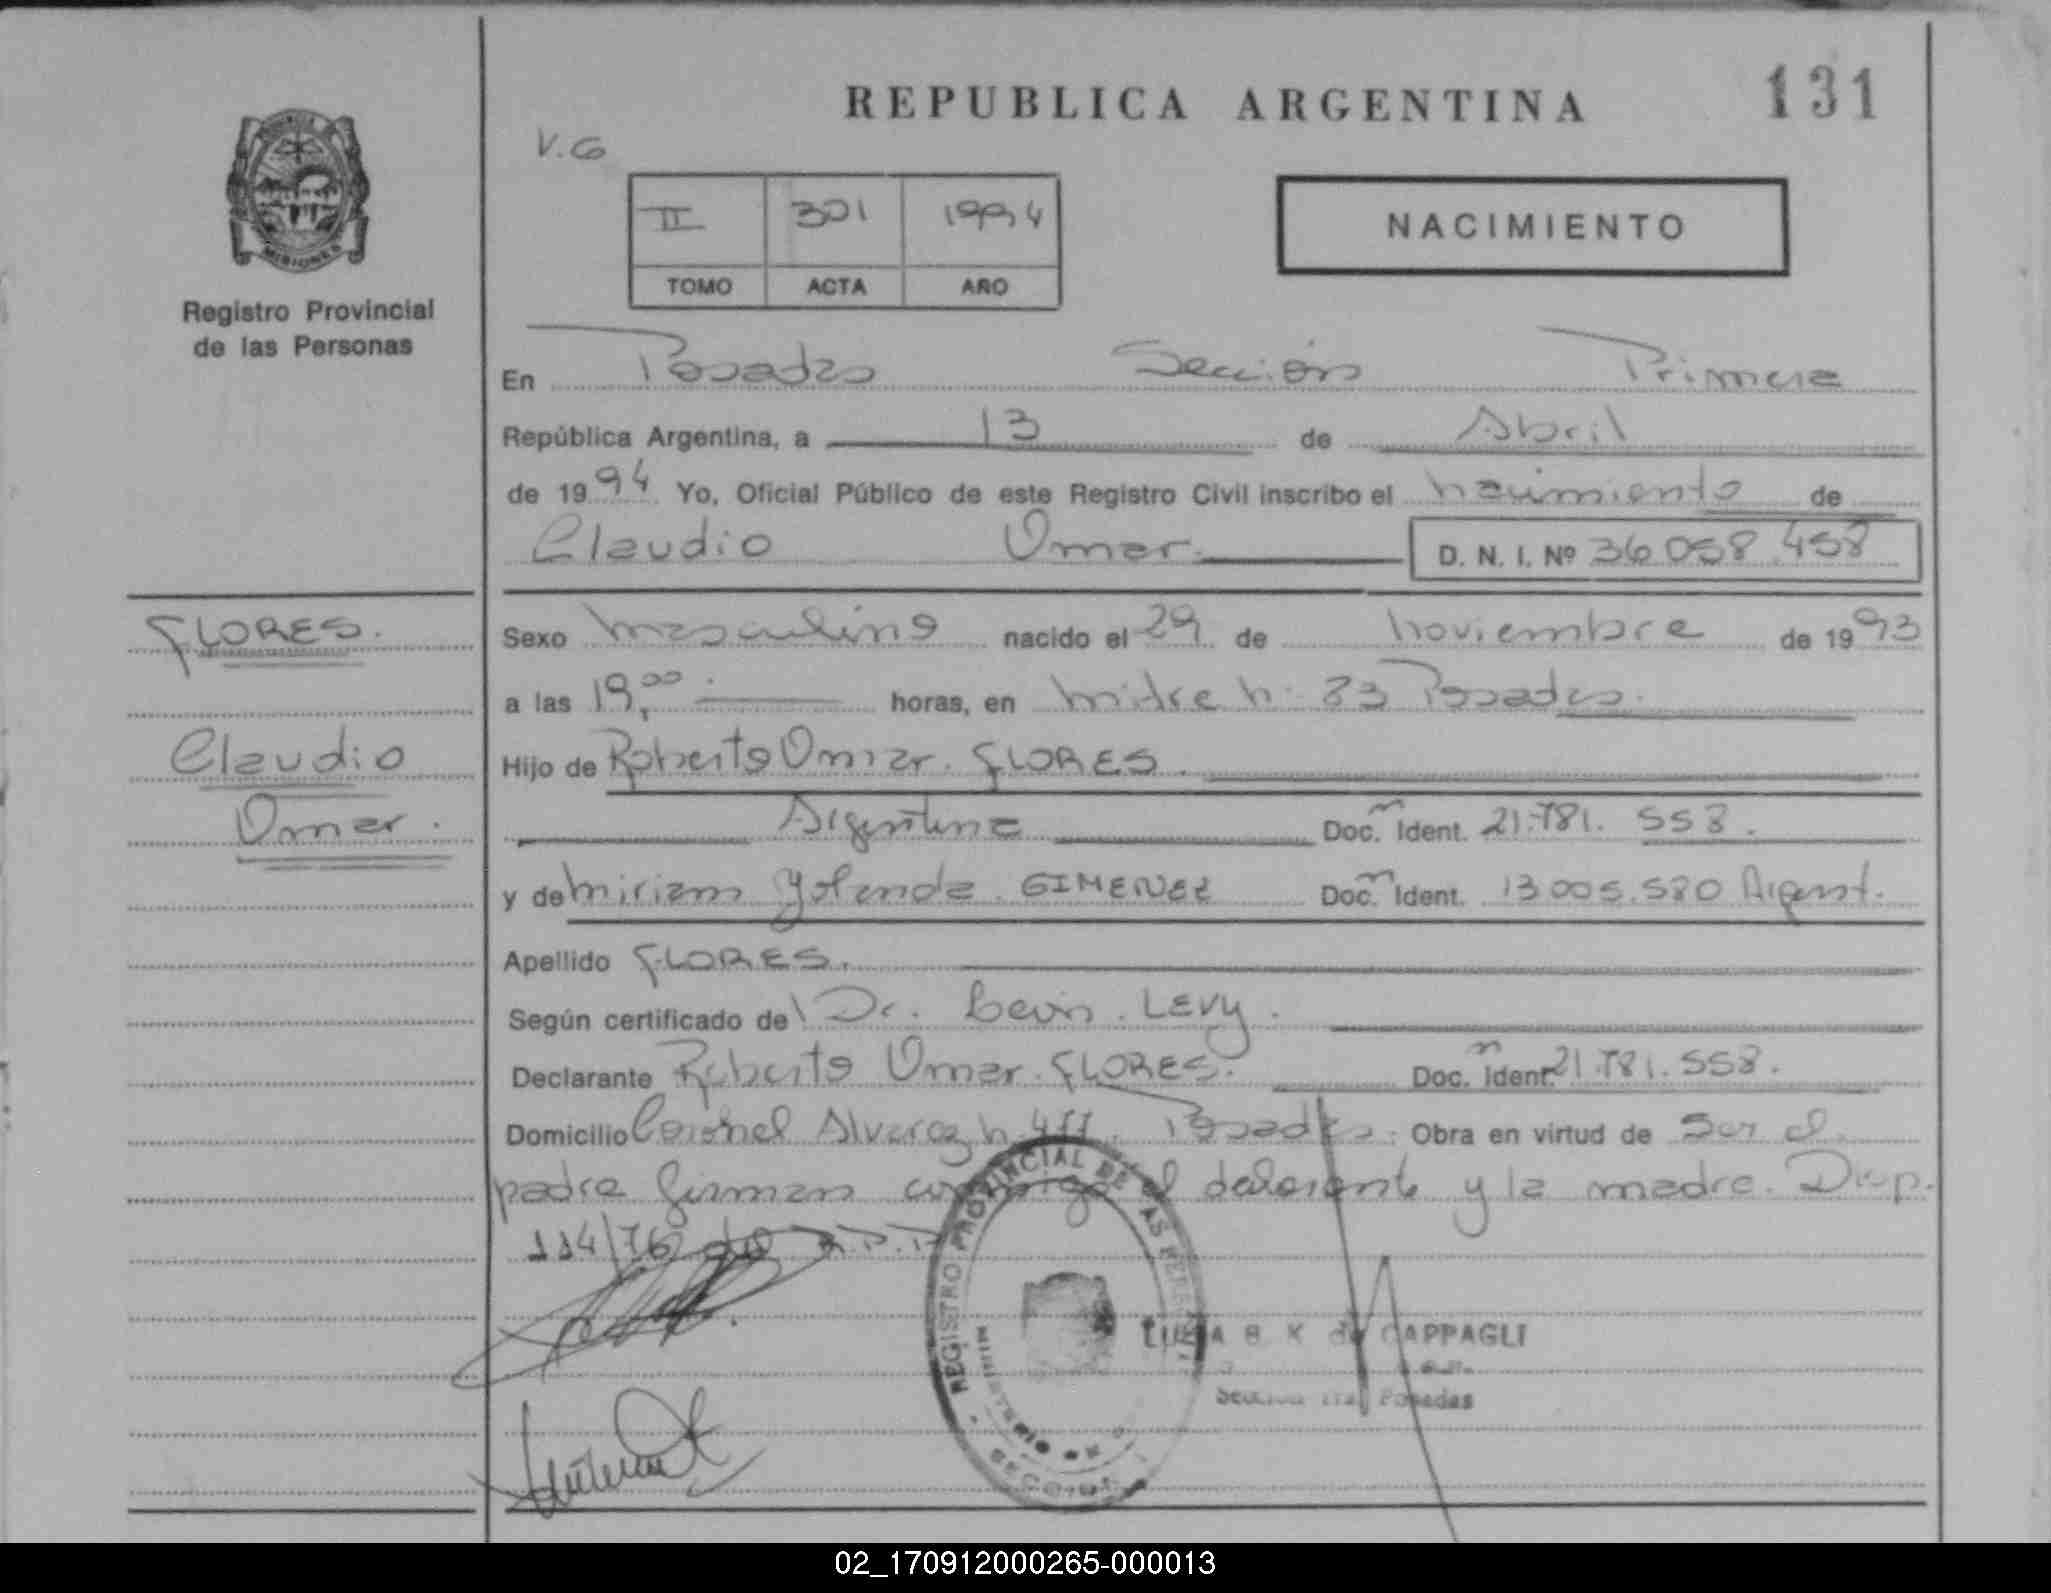 REPUBLICA ARGENTINA
131
V.G
II 301 1994
TOMO ACTA AÑO
NACIMIENTO
MISIONES
Registro Provincial
de las Personas
En Posadas Sección Primera
República Argentina, a 13 de Abril
de 1994 Yo, Oficial Público de este Registro Civil inscribo el nacimiento de
Claudio Omar. D. N. I. Nº 36.058.458
FLORES.
Claudio
Omar.
Sexo masculino nacido el 29 de noviembre de 1993
a las 19,00 horas, en Mitre n: 33 Posadas.
Hijo de Roberto Omar. FLORES.
Argentina Doc. Ident. 21.781.558.
y de Miriam Yolanda. GIMENEZ Doc. Ident. 13.005.580 Argent.
Apellido FLORES.
Según certificado del Dr. LEVY.
Declarante Roberto Omar. FLORES. Doc. Ident. 21.781.558.
Domicilio Coronel Alvarez n Posadas. Obra en virtud de Ser el
padre firman conmigo el declarante y la madre. Disp.
114/76 del R.P.P
REGISTRO PROVINCIAL DE LAS PERSONAS
B K de CAPPAGLI
Posadas
02_170912000265-000013